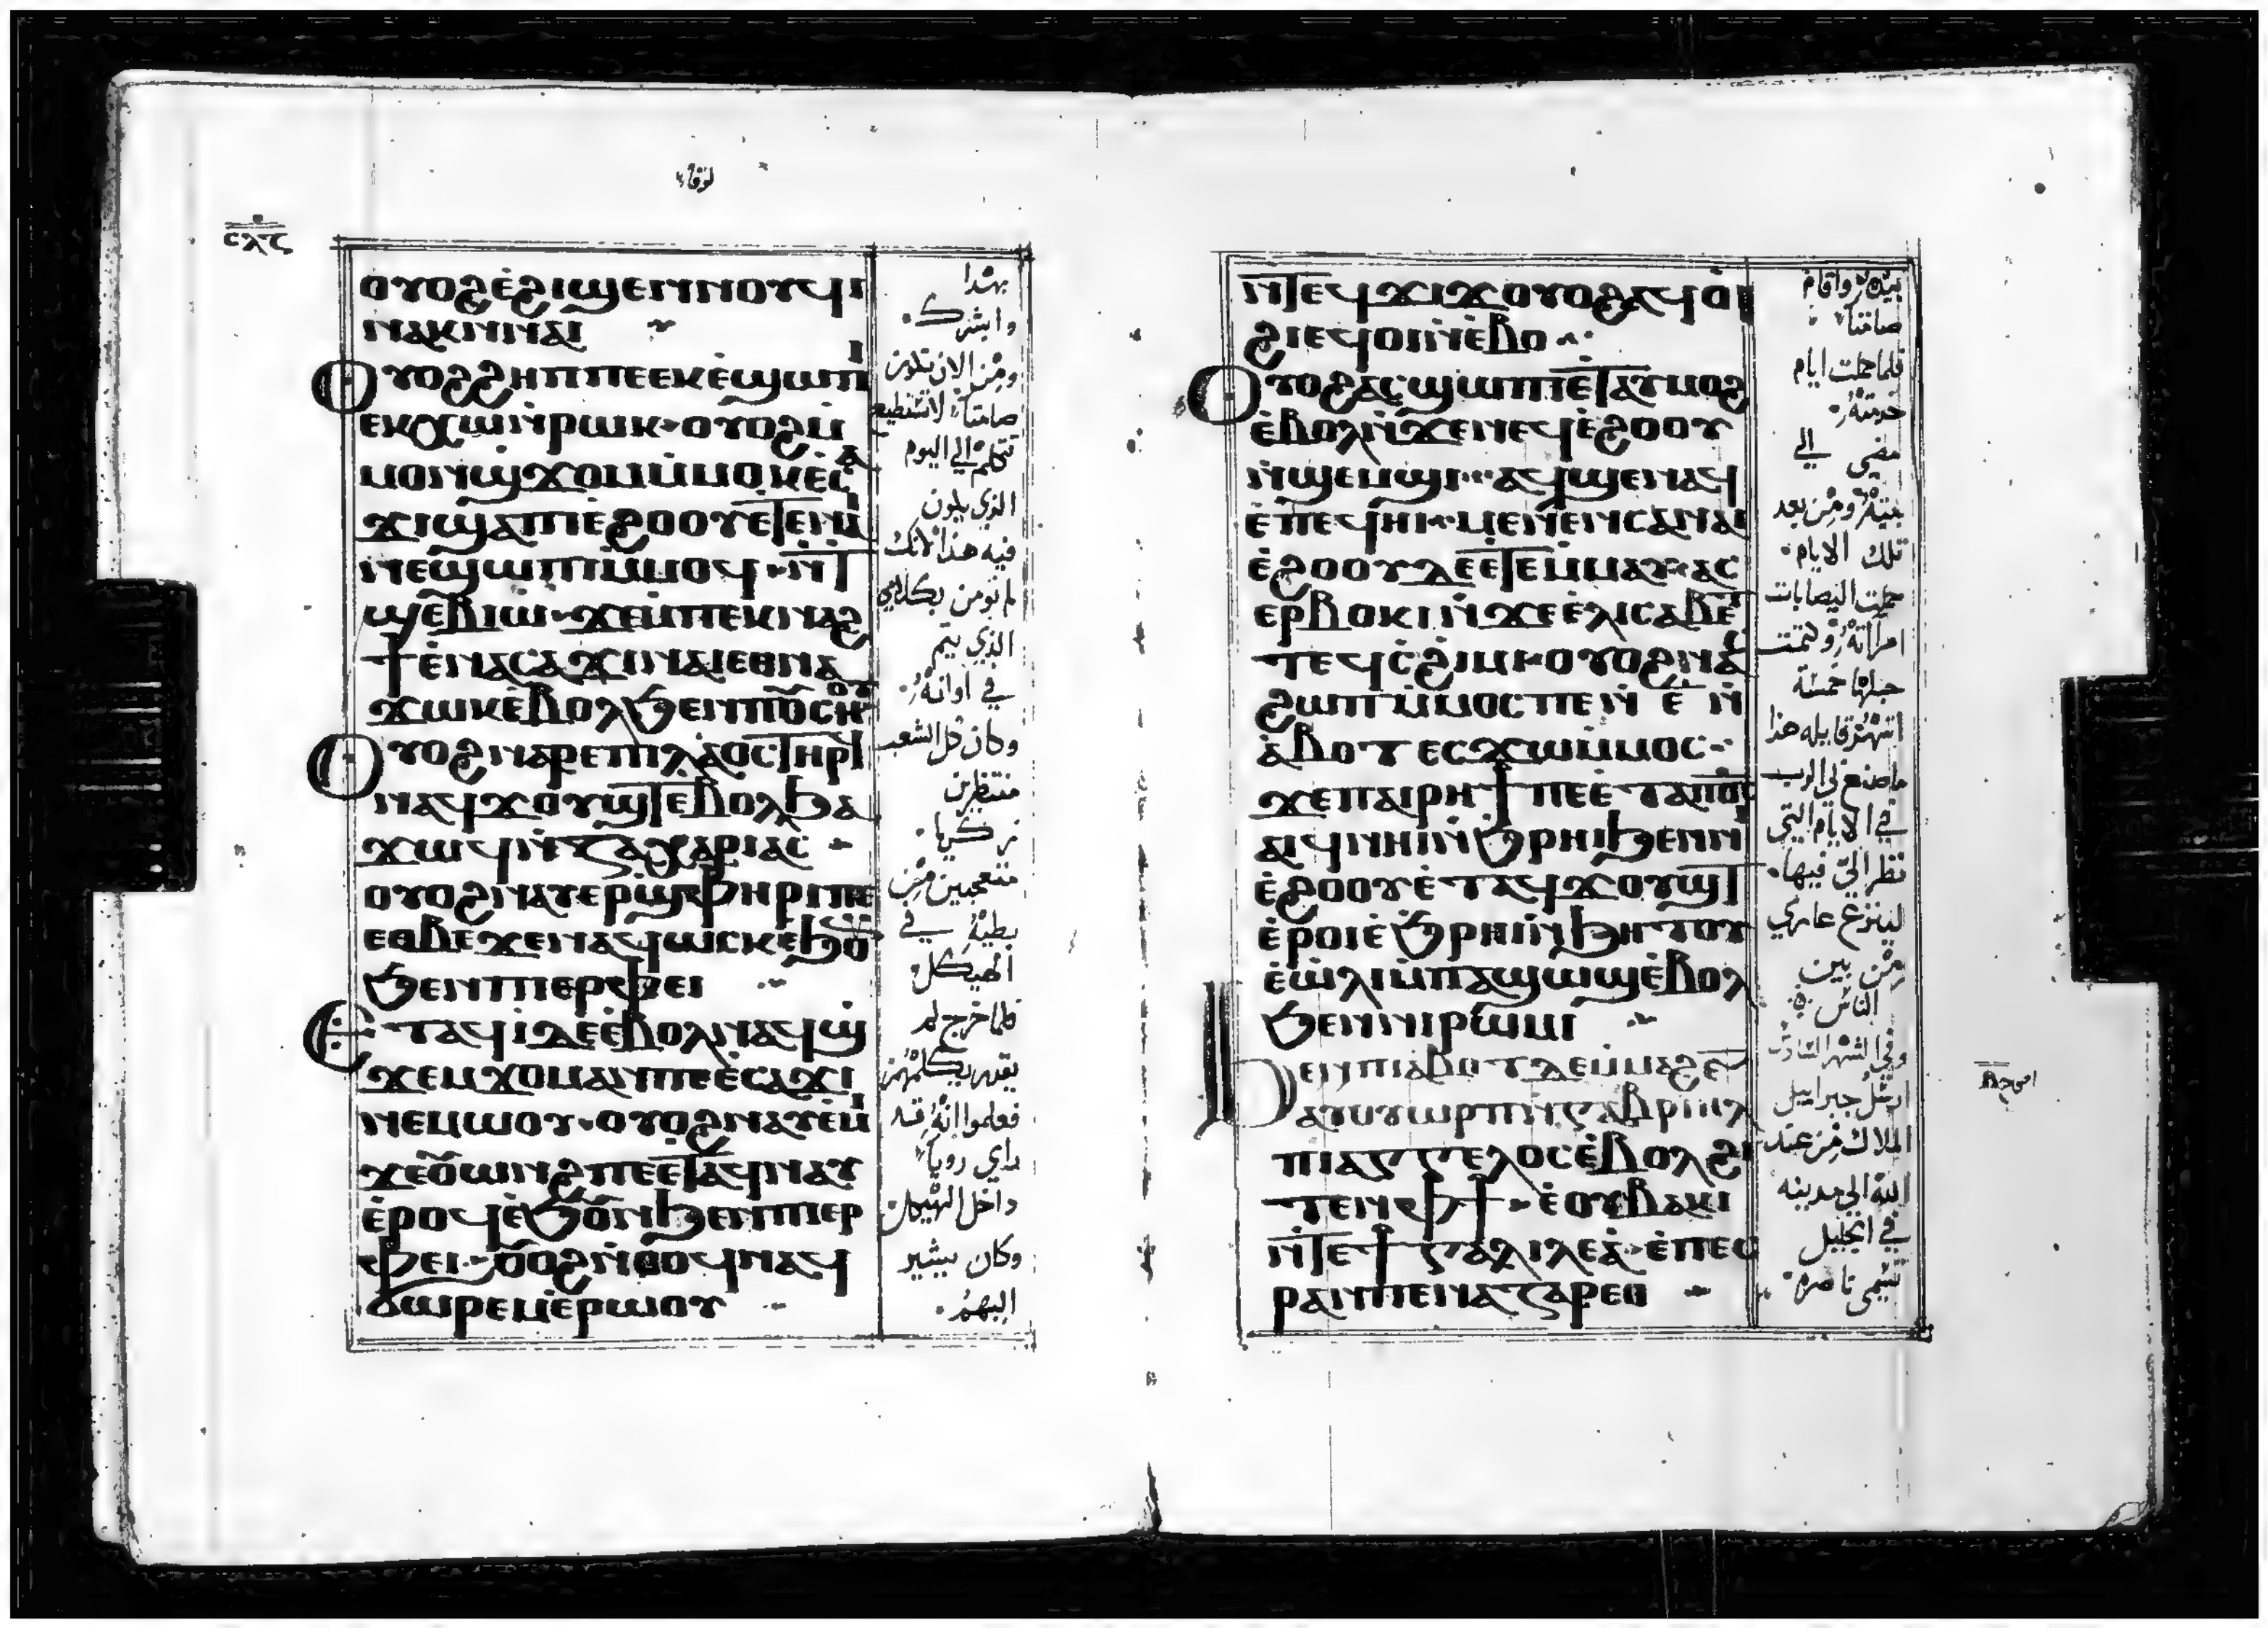 لوقا
ⲥⲗⲋ
ⲟⲩⲟϩⲉ̀ϩⲓϣⲉⲛⲛⲟⲩϥⲓ
ⲛⲁⲕⲛ̀ⲛⲁⲓ
Ⲟⲩⲟϩϩⲏⲡⲡⲉⲉⲕⲉ̀ϣⲱⲡⲓ
ⲉⲕⲭⲱⲛ̀ⲣⲱⲕ ⲟⲩⲟϩⲙ̀
ⲙⲟⲛϣϫⲟⲙⲙ̀ⲙⲟⲕⲉ̀ⲥⲁ
ϫⲓϣⲁⲡⲓⲉ̀ϩⲟⲟⲩⲉ̀ⲧⲉⲛⲁⲓ
ⲛⲉϣⲱⲡⲓⲙ̀ⲙⲟϥ ⲛ̀ⲧ
ϣⲉⲃⲓⲱ ϫⲉⲙ̀ⲡⲉⲕⲛⲁϩ
ϯⲉ̀ⲛⲁⲥⲁϫⲓⲛⲁⲓⲉⲑⲛⲁ
ϫⲱⲕⲉ̀ⲃⲟⲗϧⲉⲛⲡⲟⲩⲥⲏⲟⲩ
Ⲟⲩⲟϩⲛⲁⲣⲉⲡⲓⲗⲁⲟⲥⲧⲏⲣϥ
ⲛⲁϥϫⲟⲩϣⲧⲉ̀ⲃⲟⲗϧⲁ
ϫⲱϥⲛ̀ⲍⲁⲭⲁⲣⲓⲁⲥ
ⲟⲩⲟϩⲛⲁⲩⲉⲣϣⲫⲏⲣⲓⲡⲉ
ⲉⲑⲃⲉϫⲉⲛⲁϥⲱⲥⲕⲉ̀ϧⲟⲩⲛ
ϧⲉⲛⲡⲓⲉⲣⲫⲉⲓ
Ⲉⲧⲁϥⲓ̀ⲇⲉⲉ̀ⲃⲟⲗⲛⲁϥϣ
ϫⲉⲙϫⲟⲙⲁⲛⲡⲉⲉ̀ⲥⲁϫⲓ
ⲛⲉⲙⲱⲟⲩ ⲟⲩⲟϩⲛⲁⲩⲉ̀ⲙⲓ
ϫⲉⲟⲩⲱⲛϩⲡⲉⲉ̀ⲧⲁϥⲛⲁⲩ
ⲉ̀ⲣⲟϥⲉ̀ϧⲟⲩⲛϧⲉⲛⲡⲓⲉⲣ
ⲫⲉⲓ ⲟⲩⲟϩⲛ̀ⲑⲟϥⲛⲁϥ
ϭⲱⲣⲉⲙⲉ̀ⲣⲱⲟⲩ
بهذا
وابشرك
ومن الان تكون
صامتا لا تستطيع
تتكلم الي اليوم
الذي يكون
فيه هذا لانك
لم تومن بكلامي
الذي يتم
في اوانه
وكان كل الشعب
منتظرين
زكريا
متعجبين من
بطيه في
الهيكل
فلما خرج لم
يقدر يكلمهم
فعلموا انه قد
راي رويا
داخل الهيكل
وكان يشير
اليهم
ⲛ̀ⲧⲉϥϫⲓϫⲟⲩⲟϩⲁϥⲟ̀
ϩⲓⲉϥⲟⲓⲛ̀ⲉⲃⲟ
Ⲟⲩⲟϩⲁⲥϣⲱⲡⲓⲉ̀ⲧⲁⲩⲙⲟϩ
ⲉ̀ⲃⲟⲗⲛ̀ϫⲉⲛⲉϥⲉ̀ϩⲟⲟⲩ
ⲛ̀ϣⲉⲙϣⲓ ⲁϥϣⲉⲛⲁϥ
ⲉ̀ⲡⲉϥⲏⲓ ⲙⲉⲛⲉⲛⲥⲁⲛⲁⲓ
ⲉ̀ϩⲟⲟⲩⲇⲉⲉ̀ⲧⲉⲙ̀ⲙⲁⲩ ⲁⲥ
ⲉⲣⲃⲟⲕⲓⲛ̀ϫⲉⲉ̀ⲗⲓⲥⲁⲃⲉⲧ
ⲧⲉϥⲥ̀ϩⲓⲙⲓ ⲟⲩⲟϩⲛⲁⲥ
ϩⲱⲡⲙ̀ⲙⲟⲥⲡⲉⲛ̀ ⲉ̅ ⲛ̀
ⲁ̀ⲃⲟⲧ ⲉⲥϫⲱⲙ̀ⲙⲟⲥ
ϫⲉⲡⲁⲓⲣⲏϯⲡⲉⲉ̀ⲧⲁⲡⲟ̅ⲥ̅
ⲁⲓϥⲛⲏⲓⲛ̀ϧⲣⲏⲓϧⲉⲛⲛⲓ
ⲉ̀ϩⲟⲟⲩⲉ̀ⲧⲁϥϫⲟⲩϣⲧ
ⲉ̀ⲣⲟⲓⲉ̀ϧⲣⲏⲓⲛ̀ϧⲏⲧⲟⲩ
ⲉ̀ⲱ̀ⲗⲓⲙ̀ⲡⲁϣⲱϣⲉ̀ⲃⲟⲗ
ϧⲉⲛⲛⲓⲣⲱⲙⲓ
Ϧⲉⲛⲡⲓⲁ̀ⲃⲟⲧⲇⲉⲙ̀ⲙⲁϩ ⲋ̅
ⲁⲩⲟⲩⲱⲣⲡⲛ̀ⲅⲁⲃⲣⲓⲏⲗ
ⲡⲓⲁⲅⲅⲉⲗⲟⲥⲉ̀ⲃⲟⲗϩⲓ
ⲧⲉⲛⲫϯ ⲉ̀ⲟⲩⲃⲁⲕⲓ
ⲛ̀ⲧⲉϯⲅⲁⲗⲓⲗⲉⲁ̀ ⲉ̀ⲡⲉⲥ
ⲣⲁⲛⲡⲉⲛⲁⲍⲁⲣⲉⲑ
بيده واقام
صامتا
فلما كملت ايام
خدمته
مضي الي
بيته ومن بعد
تلك الايام
حملت اليصابات
امراته وكتمت
حبلها خمسة
اشهر قايله هذا
ما صنع لي الرب
في الايام التي
نظر الي فيها
لينزع عاري
من بين
الناس
وفي الشهر السادس
ارسل جبراييل
الملاك من عند
الله الي مدينه
في الجليل
تسمي ناصره